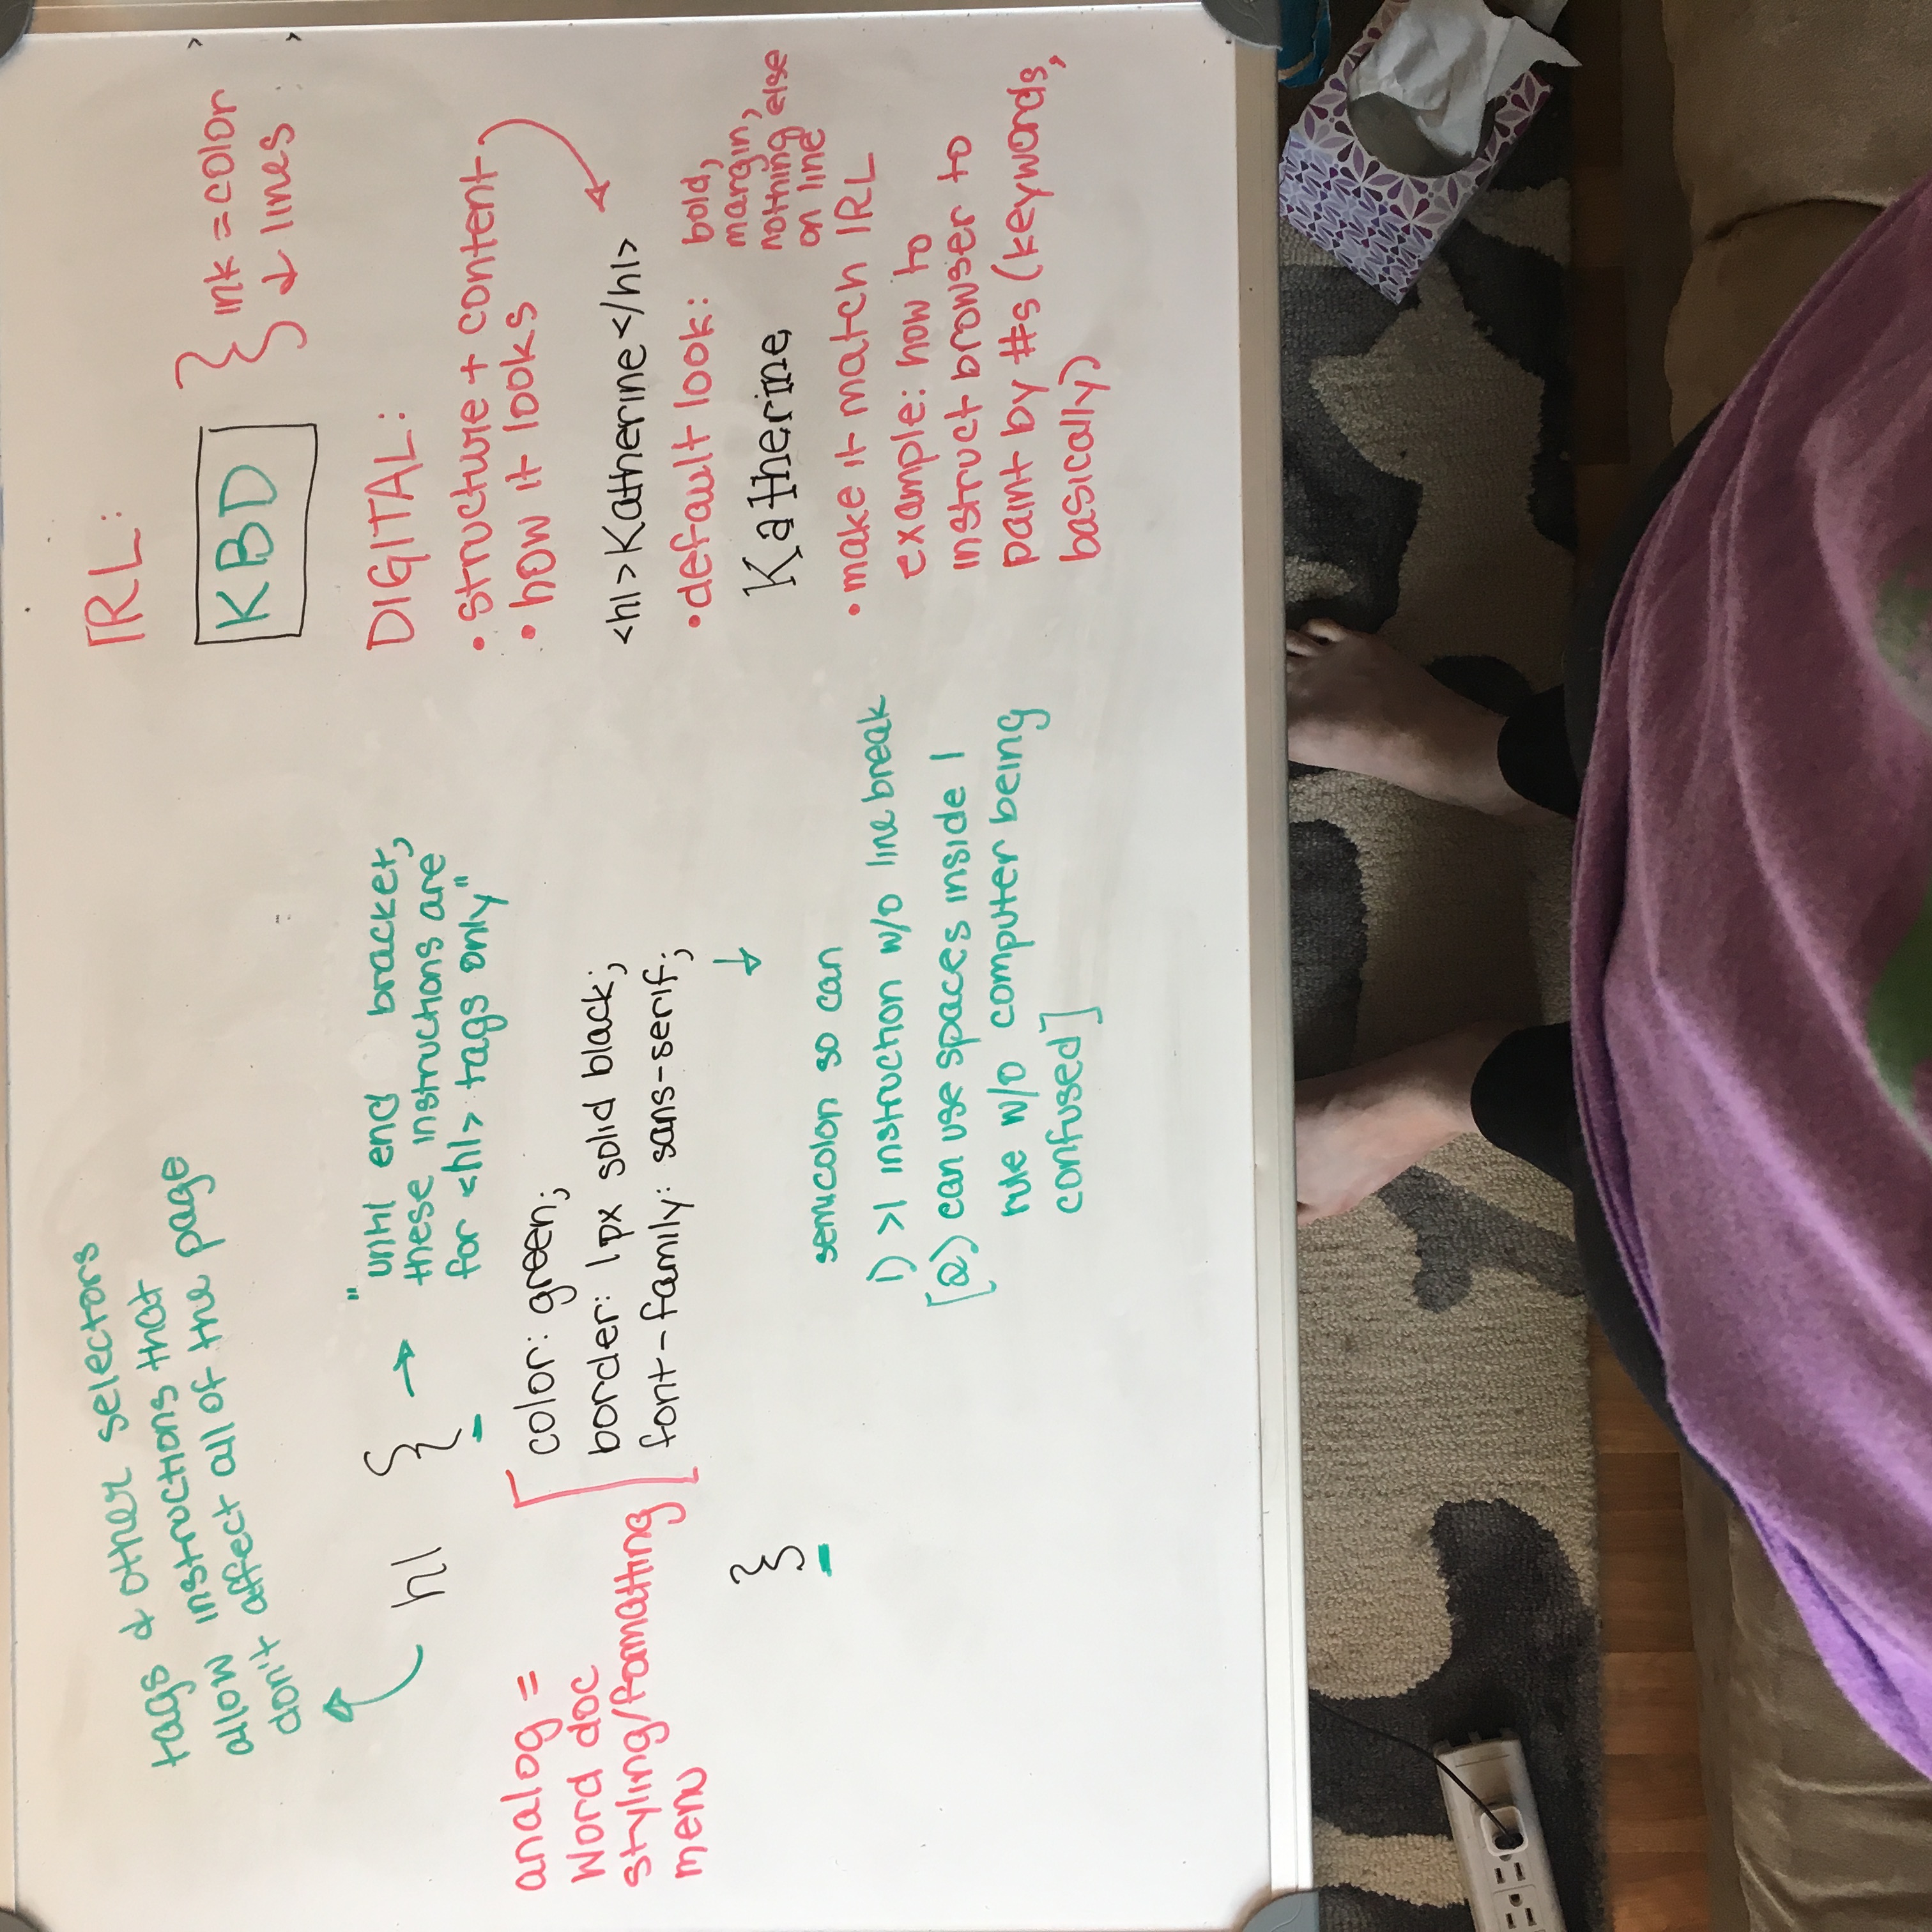 tags & other selectors
allow instructions that
don't affect all of the page
h1 {
"until end bracket,
these instructions are
for <h1> tags only"
analog =
Word doc
styling/formatting
menu
color: green;
border: 1px solid black;
font-family: sans-serif;
}
semicolon so can
1) >1 instruction w/o line break
[2) can use spaces inside 1
rule w/o computer being
confused]
IRL:
KBD
ink = color
& lines
DIGITAL:
• structure + content
• how it looks
<h1>Katherine</h1>
• default look:
bold,
margin,
nothing else
on line
Katherine
• make it match IRL
example: how to
instruct browser to
paint by #s (keywords,
basically)